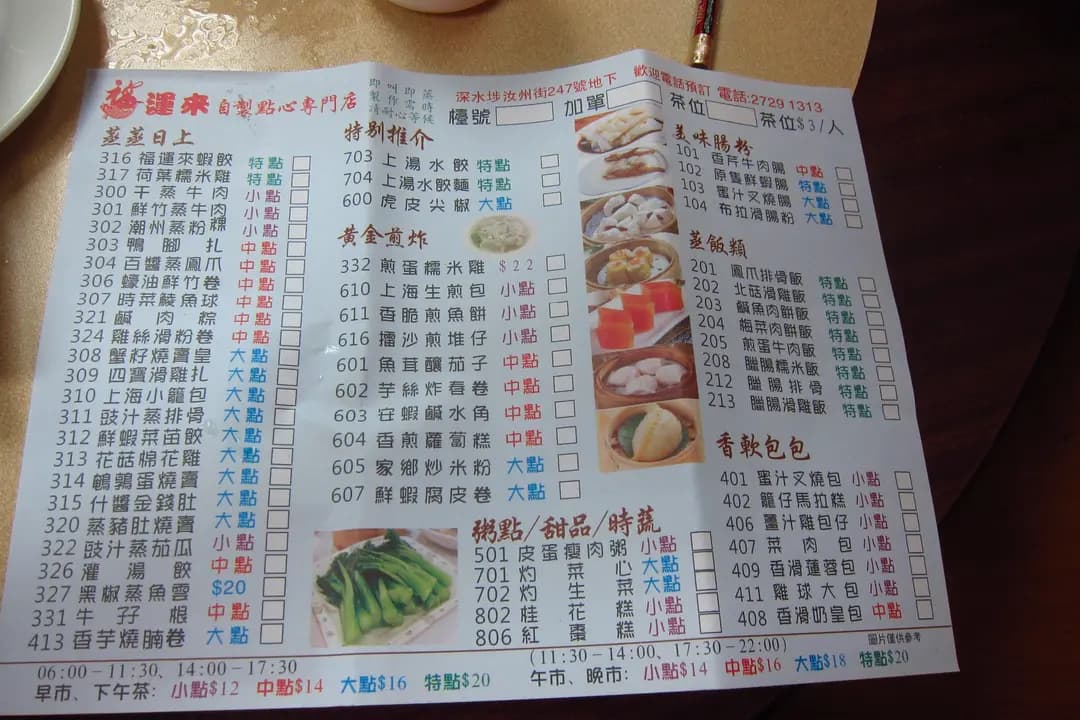 福運來 自製點心專門店
即叫即蒸
製作需時
清耐心等候
深水埗汝州街247號地下 歡迎電話預訂 電話:2729 1313
檯號 加單 茶位 茶位$3/人
蒸蒸日上
316 福運來蝦餃 特點
317 荷葉糯米雞 特點
300 干蒸牛肉 小點
301 鮮竹蒸牛肉 小點
302 潮州蒸粉粿 小點
303 鴨腳扎 中點
304 百醬蒸鳳爪 中點
306 蠔油鮮竹卷 中點
307 時菜鯪魚球 中點
321 鹹肉粽 中點
324 雞絲滑粉卷 中點
308 蟹籽燒賣皇 大點
309 四寶滑雞扎 大點
310 上海小籠包 大點
311 豉汁蒸排骨 大點
312 鮮蝦菜苗餃 大點
313 花菇棉花雞 大點
314 鵪鶉蛋燒賣 大點
315 什醬金錢肚 大點
320 蒸豬肚燒賣 大點
322 豉汁蒸茄瓜 小點
326 灌湯餃 中點
327 黑椒蒸魚雲 $20
331 牛孖根 中點
413 香芋燒腩卷 大點
特別推介
703 上湯水餃 特點
704 上湯水餃麵 特點
600 虎皮尖椒 大點
黃金煎炸
332 煎蛋糯米雞 $22
610 上海生煎包 小點
611 香脆煎魚餅 小點
616 擂沙煎堆仔 小點
601 魚茸釀茄子 中點
602 芋絲炸春卷 中點
603 在蝦鹹水角 中點
604 香煎蘿蔔糕 中點
605 家鄉炒米粉 大點
607 鮮蝦腐皮卷 大點
粥點/甜品/時蔬
501 皮蛋瘦肉粥 小點
701 灼菜心 大點
702 灼生菜 大點
802 桂花糕 小點
806 紅棗糕 小點
美味腸粉
101 香芹牛肉腸 中點
102 原隻鮮蝦腸 特點
103 蜜汁叉燒腸 大點
104 布拉滑腸粉 大點
蒸飯類
201 鳳爪排骨飯 特點
202 北菇滑雞飯 特點
203 鹹魚肉餅飯 特點
204 梅菜肉餅飯 特點
205 煎蛋牛肉飯 特點
208 臘腸糯米飯 特點
212 臘腸排骨 特點
213 臘腸滑雞飯 特點
香軟包包
401 蜜汁叉燒包 小點
402 籠仔馬拉糕 小點
406 薑汁雞包仔 小點
407 菜肉包 小點
409 香滑蓮蓉包 小點
411 雞球大包 小點
408 香滑奶皇包 中點
圖片僅供參考
06:00－11:30、14:00－17:30
早市、下午茶: 小點$12 中點$14 大點$16 特點$20
(11:30－14:00、17:30－22:00)
午市、晚市: 小點$14 中點$16 大點$18 特點$20